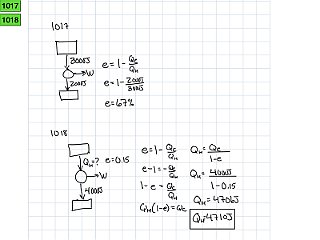 1017
1018
1017
300J
→W
200J
e = 1 - Qc/QH
e = 1 - 200J/300J
e = 67%
1018
QH=? e=0.15
→W
400J
e = 1 - Qc/QH
e - 1 = - Qc/QH
1 - e = Qc/QH
QH(1-e) = Qc
QH = Qc/1-e
QH = 400J/1-0.15
QH = 470.6J